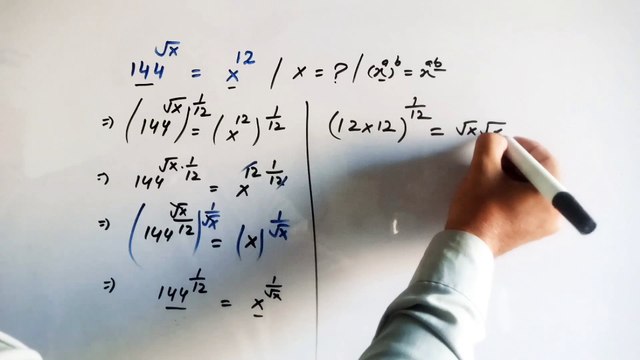 144^√x = x^12 / x = ? / (x^a)^b = x^ab
=> (144^√x)^1/12 = (x^12)^1/12
=> 144^√x·1/12 = x^12·1/12
=> (144^√x/12)^1/√x = (x)^1/√x
=> 144^1/12 = x^1/√x
(12×12)^1/12 = √x√x